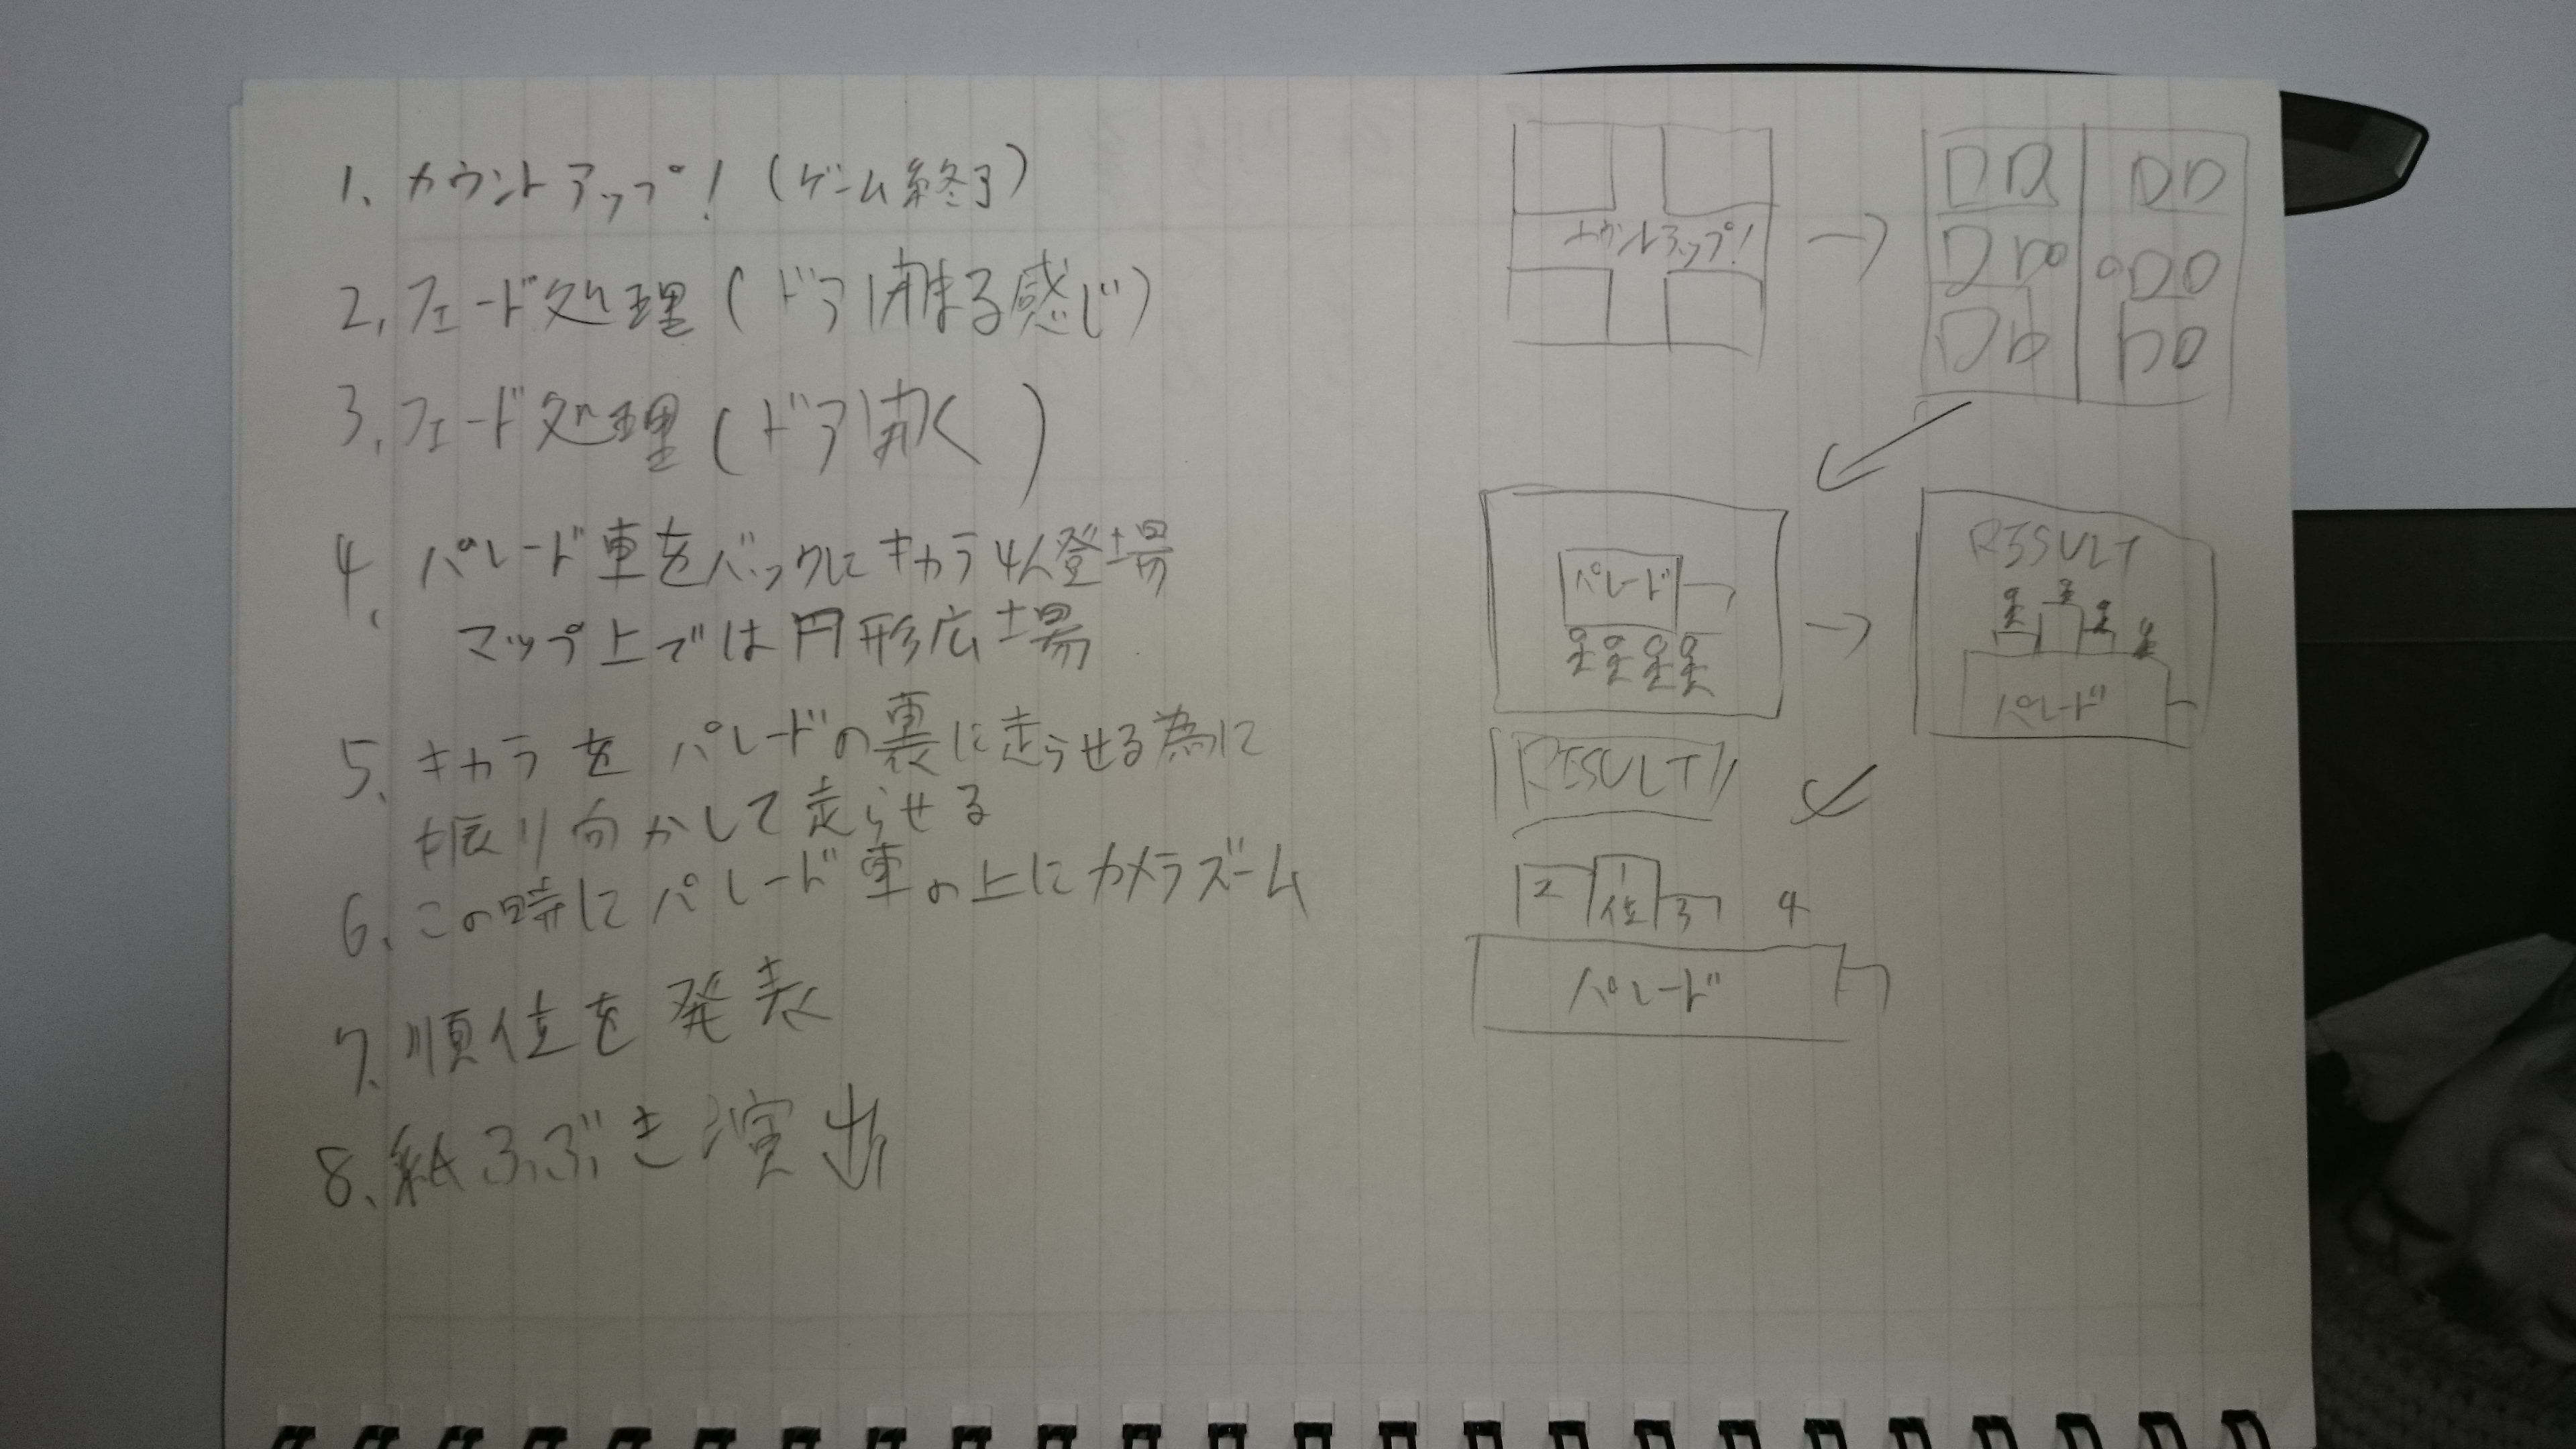 1. カウントアップ!(ゲーム終了)
2. フェード処理(ドア閉まる感じ)
3. フェード処理(ドア開く)
4. パレード車をバックにキャラ4人登場
マップ上では円形広場
5. キャラをパレードの裏に走らせる為に
振り向かして走らせる
6. この時にパレード車の上にカメラズーム
7. 順位を発表
8. 紙ふぶき演出
カウントアップ!
パレード
RESULT
パレード
RESULT
2 1位 3 4
パレード